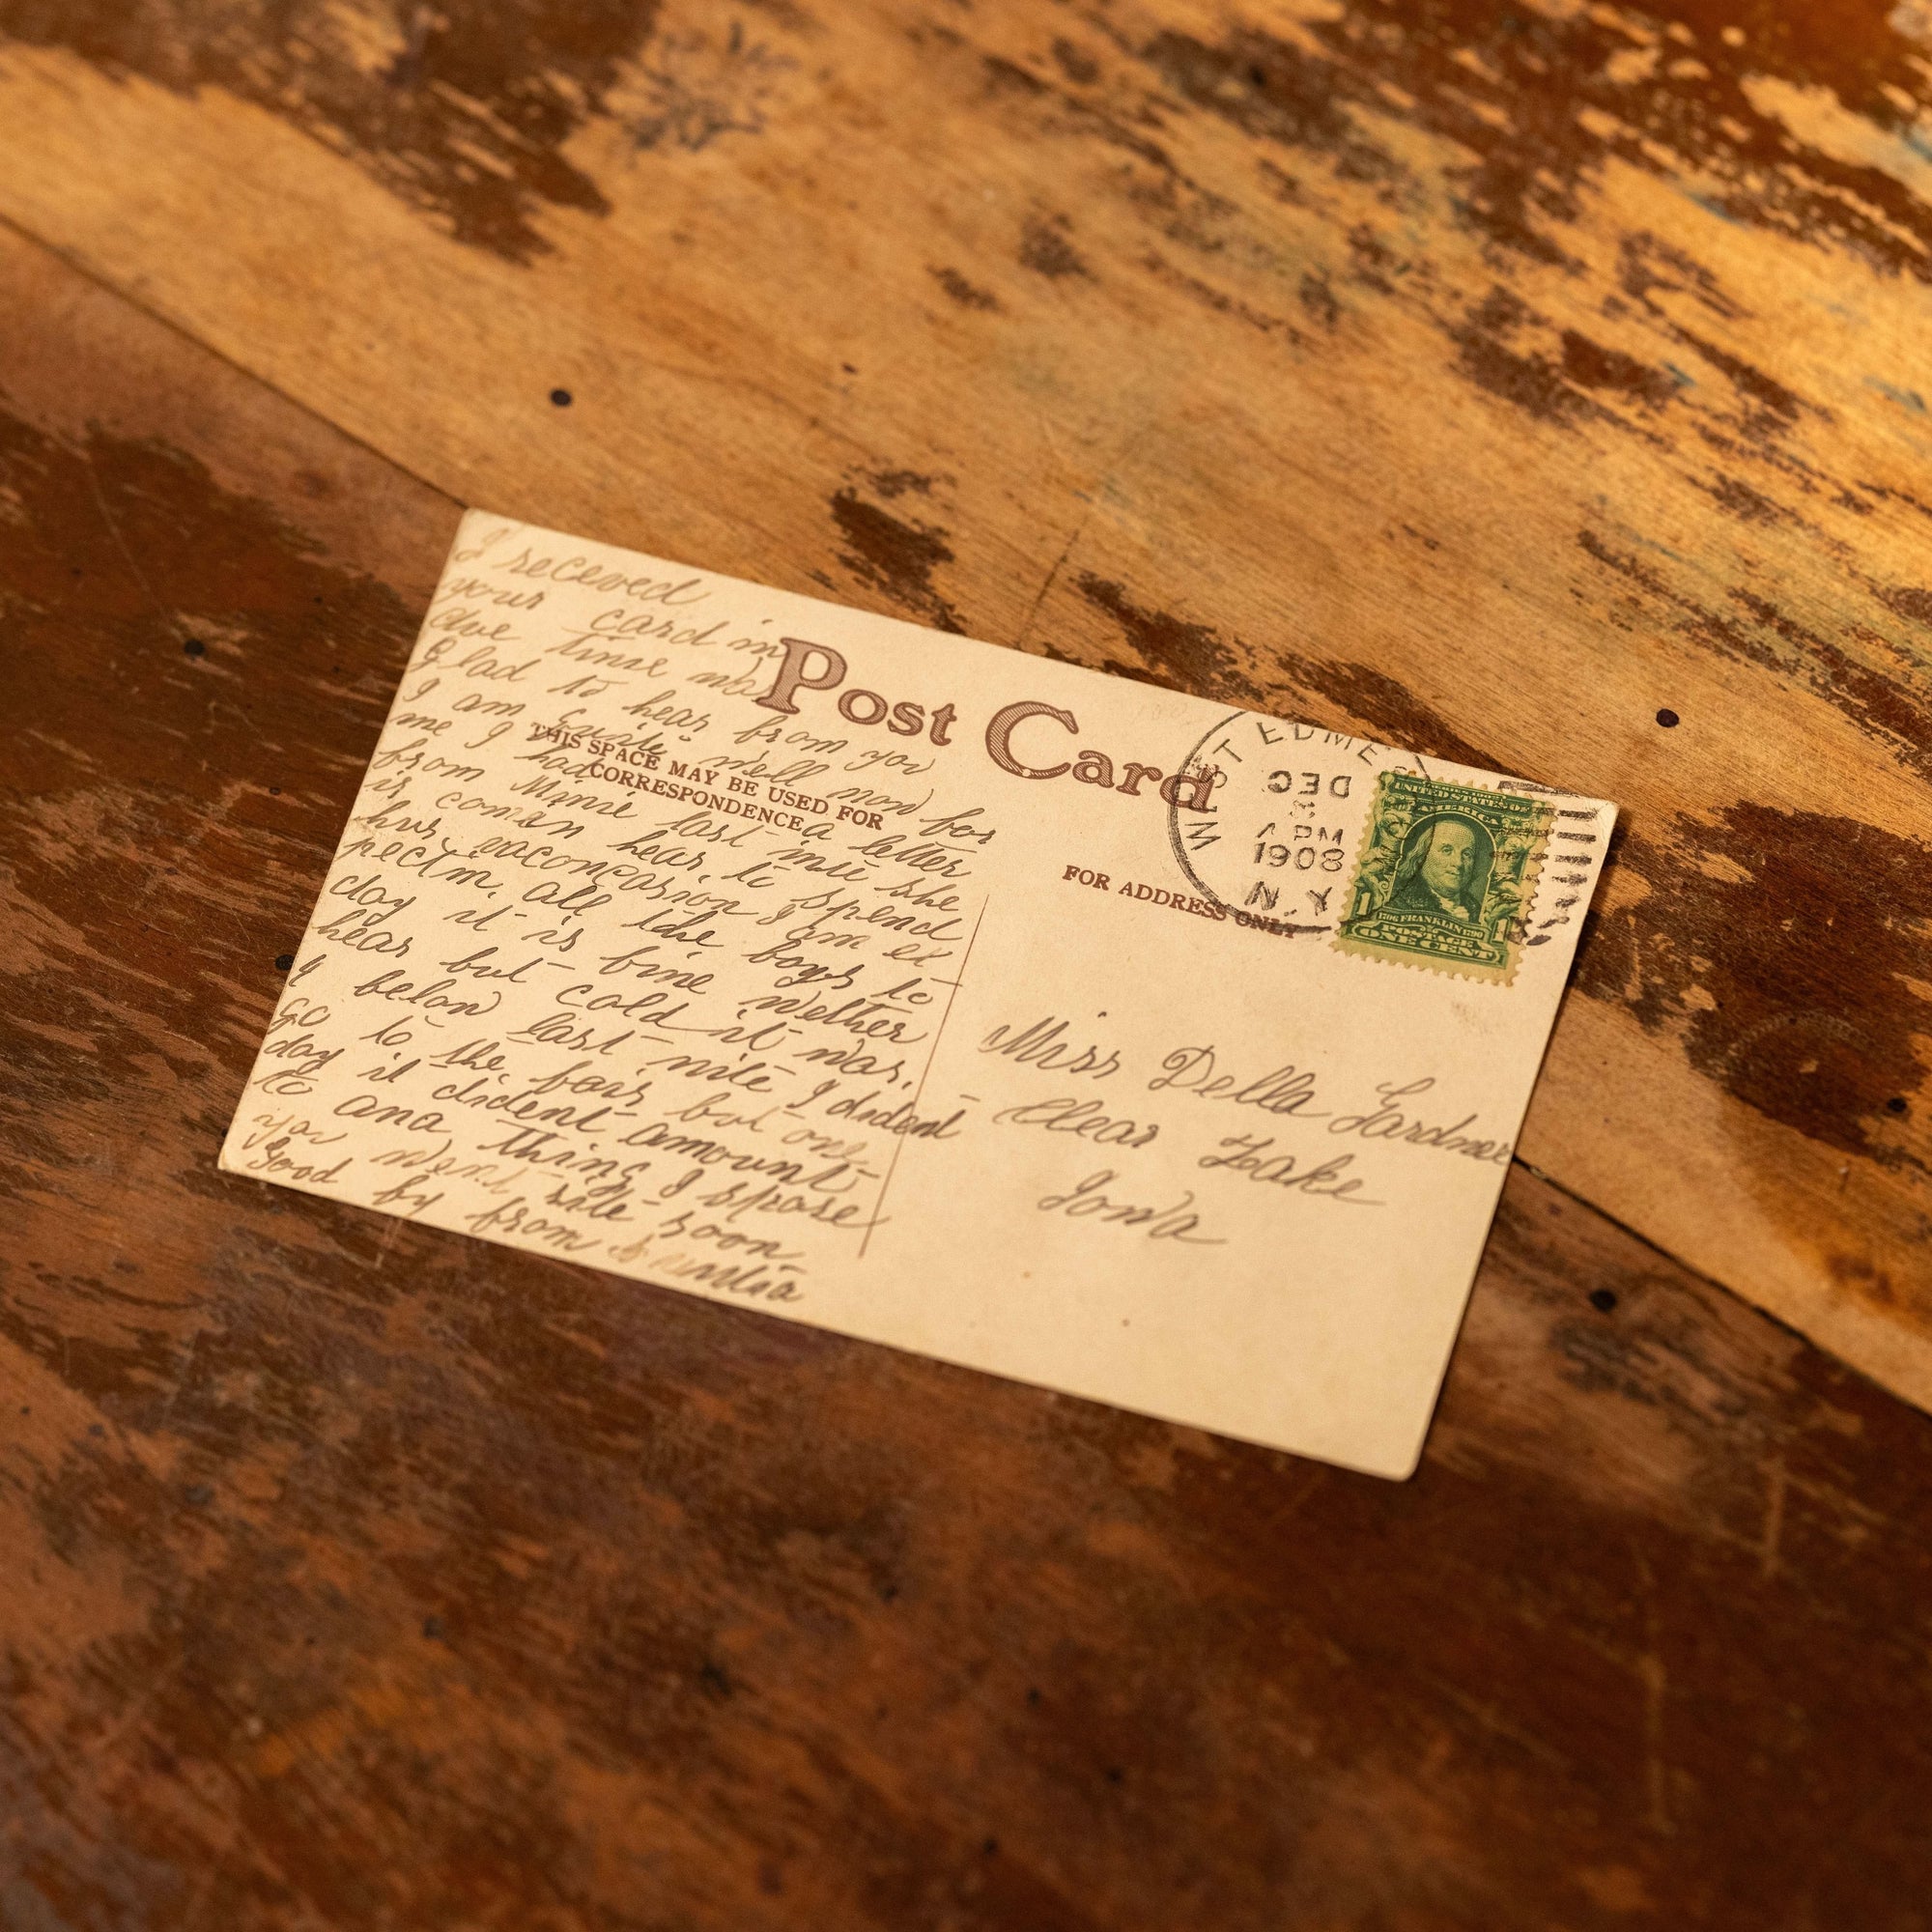 I receved
your card in
due time was
Glad to hear from you
I am quite well now for
me I had a letter
from Minie last nite she
is comen hear to spend
hur I am ex
pectin all the boys to
day it is fine wether
hear but cold it was
4 below last nite I dident
Go to the fair but one
day it dident amount
to ana thing I spose
you
good by from
Post Card
THIS SPACE MAY BE USED FOR
CORRESPONDENCE
FOR ADDRESS ONLY
WEST EDME
DEC
PM
1908
N.Y
UNITED STATES OF
AMERICA
1706 FRANKLIN 1790
POSTAGE
1 ONE CENT 1
Miss Della Gardner
Clear Lake
Iowa